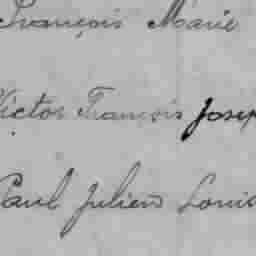 François Marie
Victor François Josep
Paul Julien Louis